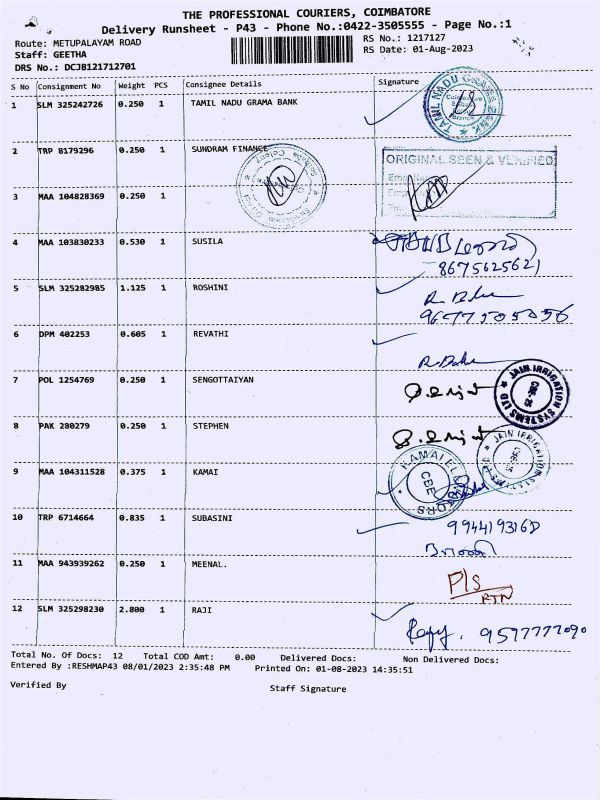 THE PROFESSIONAL COURIERS, COIMBATORE
Delivery Runsheet - P43 - Phone No.:0422-3505555 - Page No.:1
Route: METUPALAYAM ROAD
RS No.: 1217127
Staff: GEETHA
RS Date: 01-Aug-2023
DRS No.: DCJB121712701
S No Consignment No Weight PCS Consignee Details Signature
1 SLM 325242726 0.250 1 TAMIL NADU GRAMA BANK
TAMIL NADU GRAMA BANK
2 TRP 8179296 0.250 1 SUNDRAM FINANCE
ORIGINAL SEEN & VERIFIED
3 MAA 104828369 0.250 1
4 MAA 103830233 0.530 1 SUSILA
8675625621
5 SLM 325282985 1.125 1 ROSHINI
6 DPM 402253 0.605 1 REVATHI
7 POL 1254769 0.250 1 SENGOTTAIYAN
JAIN IRRIGATION SYSTEMS LTD
CBE-15
8 PAK 280279 0.250 1 STEPHEN
JAIN IRRIGATION SYSTEMS LTD
9 MAA 104311528 0.375 1 KAMAI
CBE
10 TRP 6714664 0.835 1 SUBASINI
11 MAA 943939262 0.250 1 MEENAL.
P/s
RTN
12 SLM 325298230 2.800 1 RAJI
9597777090
Total No. Of Docs: 12 Total COD Amt: 0.00 Delivered Docs: Non Delivered Docs:
Entered By :RESHMAP43 08/01/2023 2:35:48 PM Printed On: 01-08-2023 14:35:51
Verified By
Staff Signature